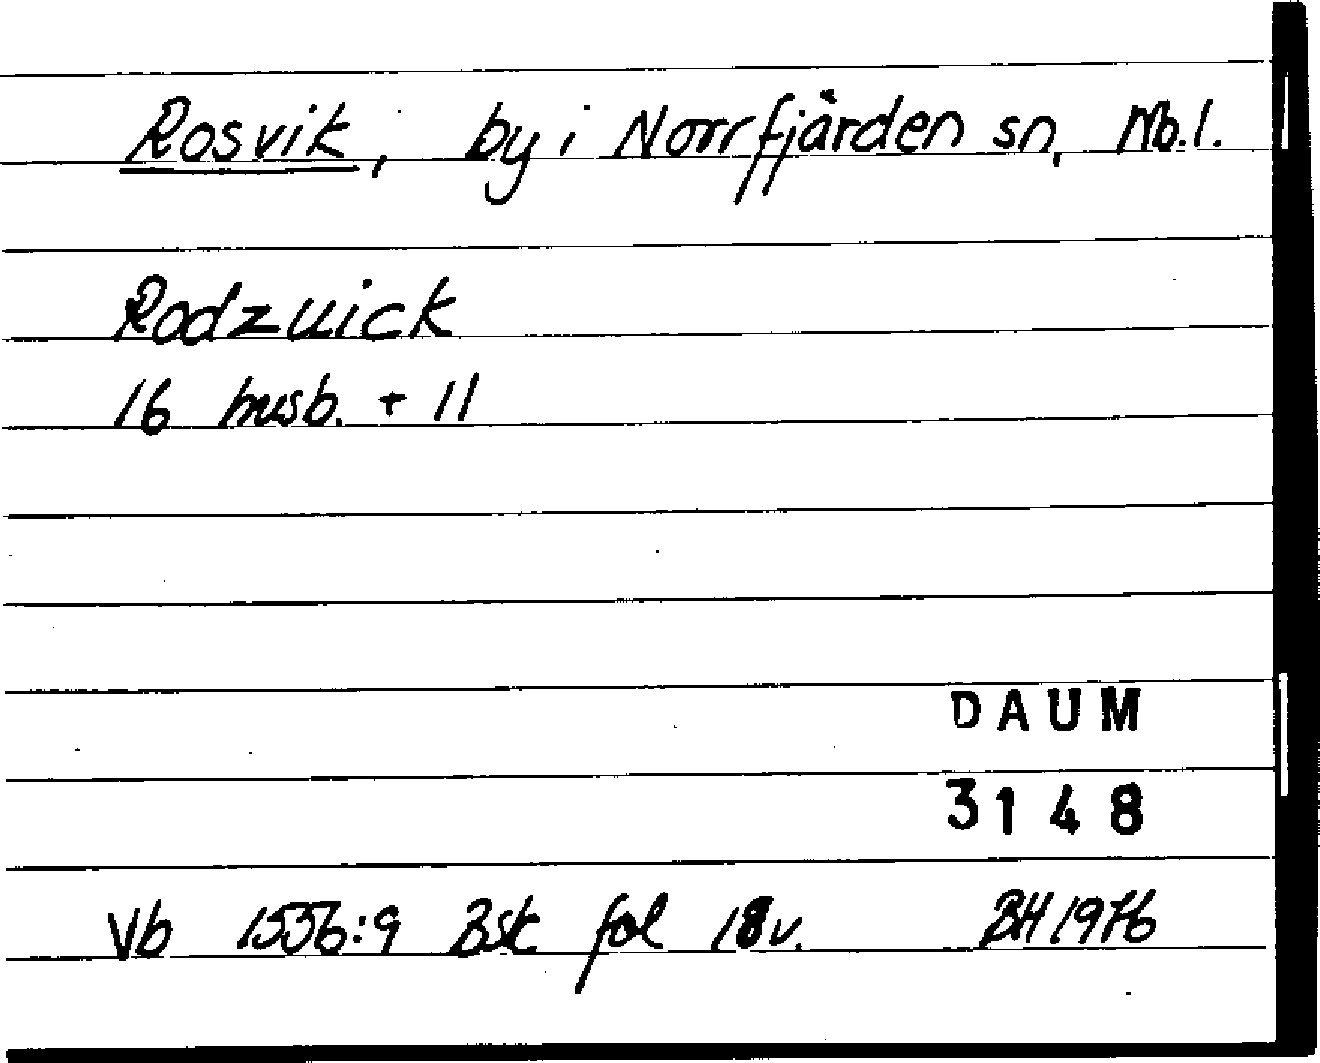 Rosvik, by i Norrfjärden sn, Nb.l.
Rodzuick
16 husb. + 11
DAUM
3148
Vb 1556:9 Bsk fol 18v. BH 1976